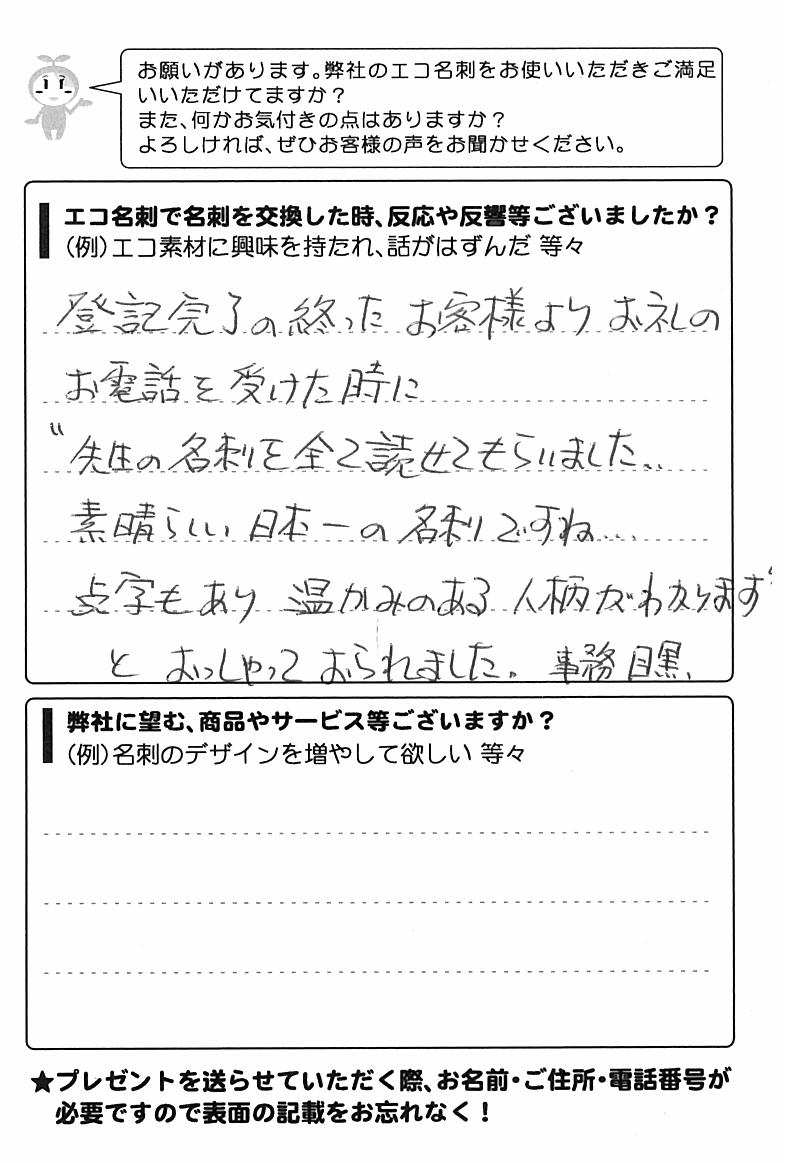 お願いがあります。弊社のエコ名刺をお使いいただきご満足
いいただけてますか？
また、何かお気付きの点はありますか？
よろしければ、ぜひお客様の声をお聞かせください。
エコ名刺で名刺を交換した時、反応や反響等ございましたか？
（例）エコ素材に興味を持たれ、話がはずんだ 等々
登記完了の終ったお客様よりお礼の
お電話を受けた時に
“先生の名刺を全て読せてもらいました..
素晴らしい日本一の名刺ですね...
点字もあり温かみのある人柄がわかります”
とおっしゃっておられました。事務 目黒、
弊社に望む、商品やサービス等ございますか？
（例）名刺のデザインを増やして欲しい 等々
★プレゼントを送らせていただく際、お名前・ご住所・電話番号が
必要ですので表面の記載をお忘れなく！